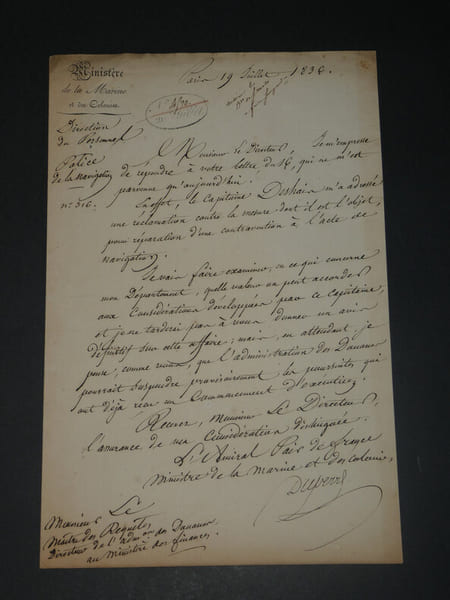 Ministère
de la Marine
et des Colonies
Paris 19 Juillet 1836.
Direction
du Personnel
Police
de la Navigation
n.° 316.
Monsieur le Directeur, Je m'empresse
de répondre à votre lettre du 16, qui ne m'est
parvenue qu'aujourd'hui.
En effet, le Capitaine Deshais m'a adressé
une réclamation contre la mesure dont il est l'objet,
pour réparation d'une contravention à l'acte de
navigation.
Je vais faire examiner, en ce qui concerne
mon Département, quelle valeur on peut accorder
aux Considérations développées par ce Capitaine,
et je ne tarderai pas à vous donner un avis
définitif sur cette affaire; mais, en attendant, je
pense, comme vous, que l'administration des Douanes
pourrait suspendre provisoirement les poursuites qui
ont déjà reçu un Commencement d'exécution.
Recevez, Monsieur Le Directeur,
l'assurance de ma Considération distinguée.
L'Amiral Pair de france
Ministre de la Marine et des colonies,
Duperré
Monsieur Le
Maître des Requêtes,
Directeur de l'adm.on des Douanes
au Ministère des finances.